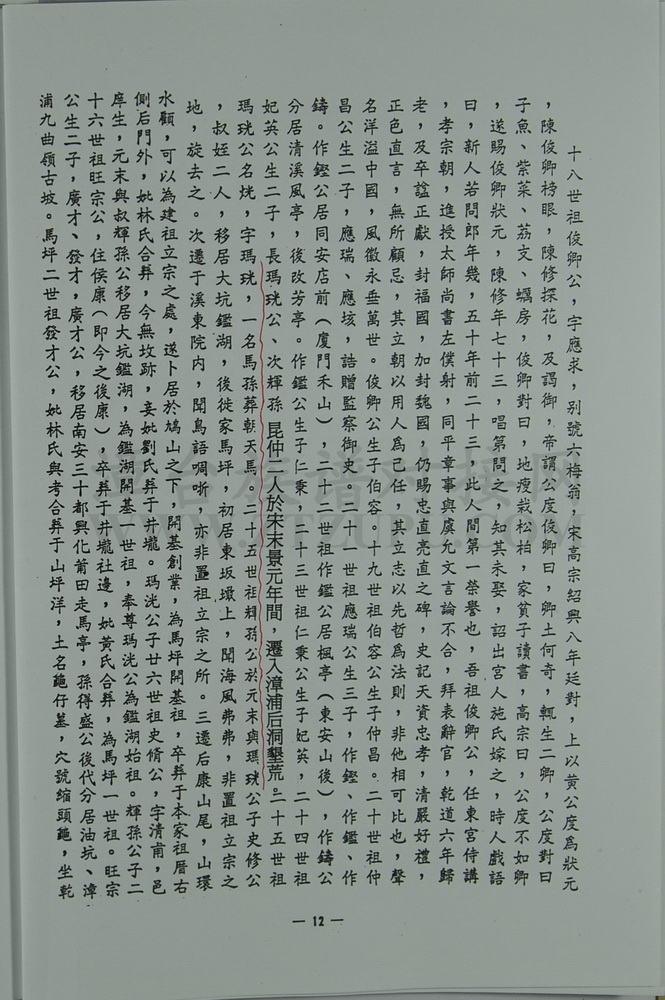 十八世祖俊卿公，字應求，別號六梅翁，宋高宗紹興八年廷對，上以黃公度為狀元
，陳俊卿榜眼，陳修探花，及謁御，帝謂公度俊卿曰，卿土何奇，輒生二卿，公度對曰
子魚、紫菜、荔支、蠣房，俊卿對曰，地瘦栽松柏，家貧子讀書，高宗曰，公度不如卿
，遂賜俊卿狀元，陳修年七十三，唱第問之，知其未娶，詔出宮人施氏嫁之，時人戲語
曰，新人若問郎年幾，五十年前二十三，此人間第一榮譽也，吾祖俊卿公，任東宮侍講
，孝宗朝，進授太師尚書左僕射，同平章事與虞允文言論不合，拜表辭官，乾道六年歸
老，及卒諡正獻，封福國，加封魏國，仍賜忠直亮直之碑，史記天資忠孝，清嚴好禮，
正色直言，無所顧忌，其立朝以用人為己任，其立志以先哲為法則，非他相可比也，聲
名洋溢中國，風徽永垂萬世。俊卿公生子伯容。十九世祖伯容公生子仲昌。二十世祖仲
昌公生二子，應瑞、應垓，誥贈監察御史。二十一世祖應瑞公生三子，作鏗、作鑑、作
鑄。作鏗公居同安店前（廈門禾山），二十二世祖作鑑公居楓亭（東安山後），作鑄公
分居清溪風亭，後改芳亭。作鑑公生子仁乘，二十三世祖仁乘公生子妃英，二十四世祖
妃英公生二子，長瑪珖公、次輝孫 昆仲二人於宋末景元年間，遷入漳浦后洞墾荒。二十五世祖
瑪珖公名烍，字瑪珖，一名馬孫葬朝天馬。二十五世祖輝孫公於元末與瑪珖公子史修公
，叔姪二人，移居大坑鑑湖，後徙家馬坪，初居東坂墩上，聞海風弗弗，非置祖立宗之
地，旋去之。次遷于溪東院内，聞鳥語啁哳，亦非置祖立宗之所。三遷后康山尾，山環
水顧，可以為建祖立宗之處，遂卜居於鳩山之下，開基創業，為馬坪開基祖，卒葬于本家祖厝右
側后門外，妣林氏合葬，今無坟跡，妾妣劉氏葬于井壠。瑪洸公子廿六世祖史脩公，字清甫，邑
庠生，元末與叔輝孫公移居大坑鑑湖，為鑑湖開基一世祖，奉尊瑪洸公為鑑湖始祖。輝孫公子二
十六世祖旺宗公，住侯康（即今之後康），卒葬于井壠社邊，妣黃氏合葬，為馬坪一世祖。旺宗
公生二子，廣才、發才，廣才公，移居南安三十都興化莆田走馬亭，孫得盛公後代分居油坑、漳
浦九曲嶺古坡。馬坪二世祖發才公，妣林氏與考合葬于山坪洋，土名龜仔墓，穴號縮頭龜，坐乾
— 12 —